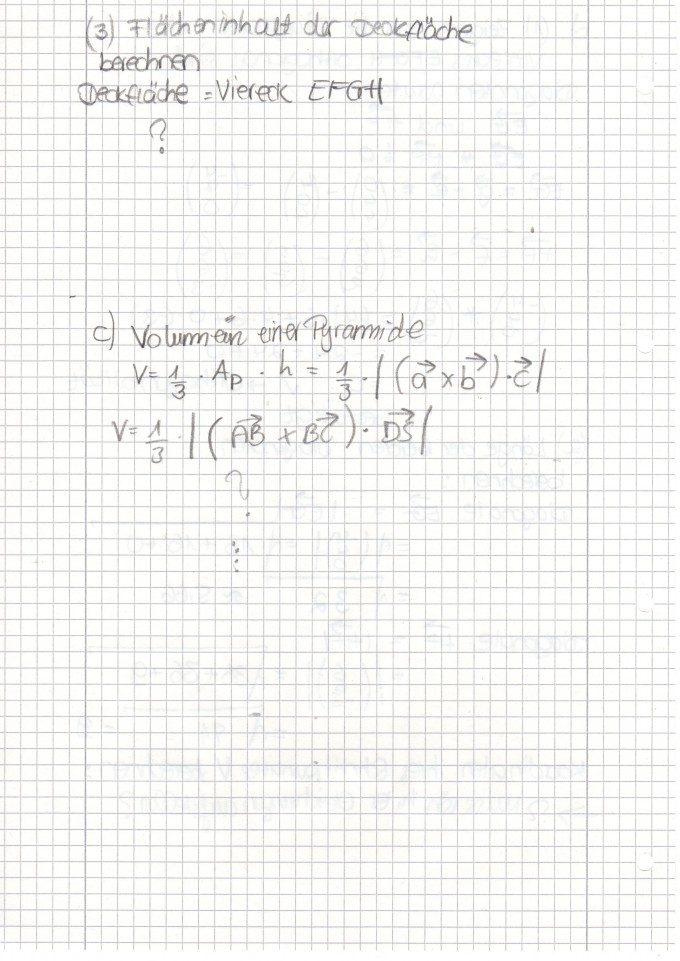 (3) Flächeninhalt der Deckfläche
berechnen
Deckfläche = Viereck EFGH
?
c) Volumen einer Pyramide
V = 1/3 · Ap · h = 1/3 · |(a⃗ × b⃗) · c⃗|
V = 1/3 · |(AB⃗ × BC⃗) · DS⃗|
?
⋮